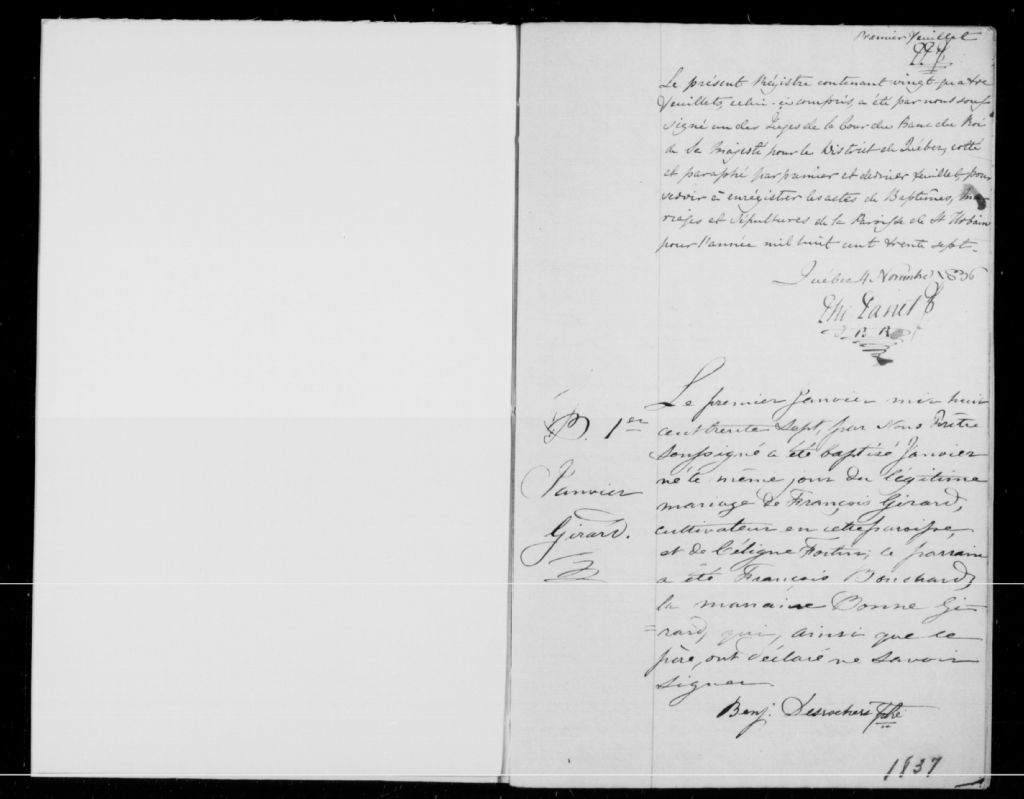 Premier feuillet
Le présent Régistre contenant vingt quatre
feuillets, celui-ci compris, a été par nous sous-
signé un des Juges de la Cour du Banc du Roi
de Sa Majesté pour le District de Québec, cotté
et paraphé par premier et dernier feuillet, pour
servir à enrégistrer les actes de Baptêmes, Ma-
riages et Sépultures de la Paroisse de St Urbain
pour l'année mil huit cent trente sept.
Québec 4 Novembre 1836
J B R
B. 1er
Janvier
Girard.
Le premier Janvier mil huit
cent trente sept, par Nous Prêtre
soussigné a été baptisé Janvier
né le même jour du légitime
mariage de François Girard,
cultivateur en cette paroisse,
et de Céligne Fortin; le parrain
a été François Bouchard,
la marraine Bonne Gi-
rard, qui, ainsi que le
père, ont déclaré ne savoir
signer
Benj. Desrochers Ptre
1837